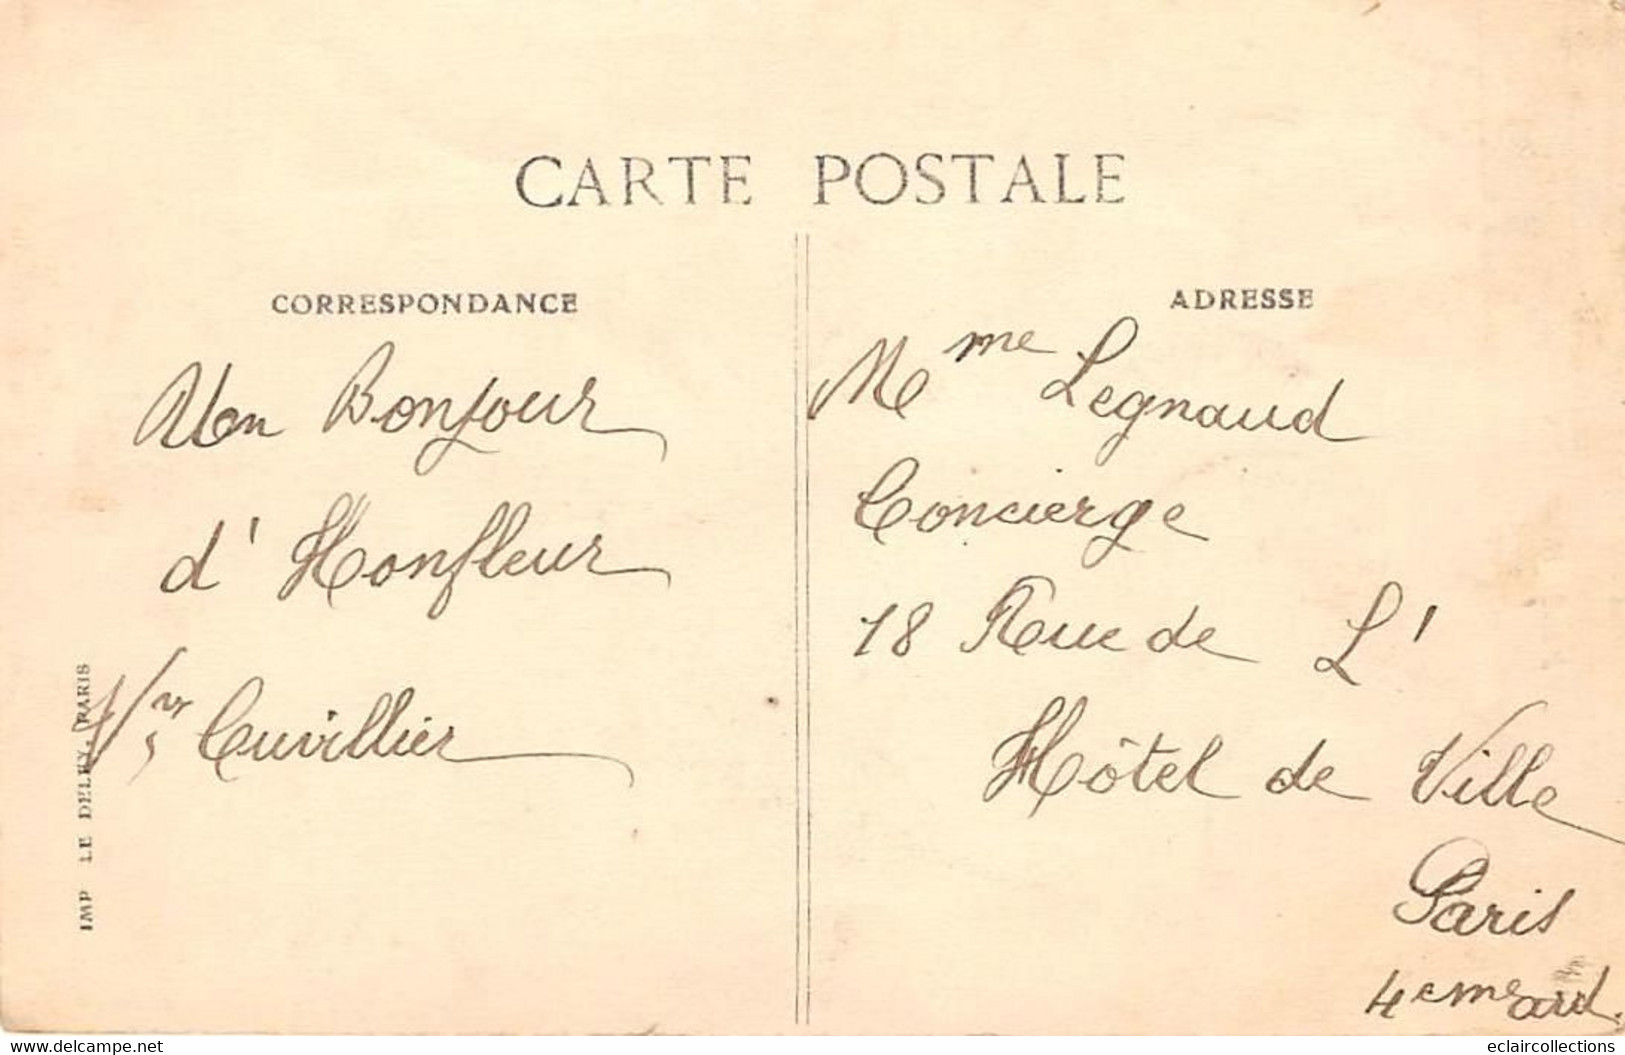 CARTE POSTALE
CORRESPONDANCE
Un Bonjour
d'Honfleur
Cuvillier
IMP LE DELEY, PARIS
ADRESSE
Mme Legnaud
Concierge
18 Rue de L'
Hôtel de Ville
Paris
4eme ard.
www.delcampe.net
eclaircollections